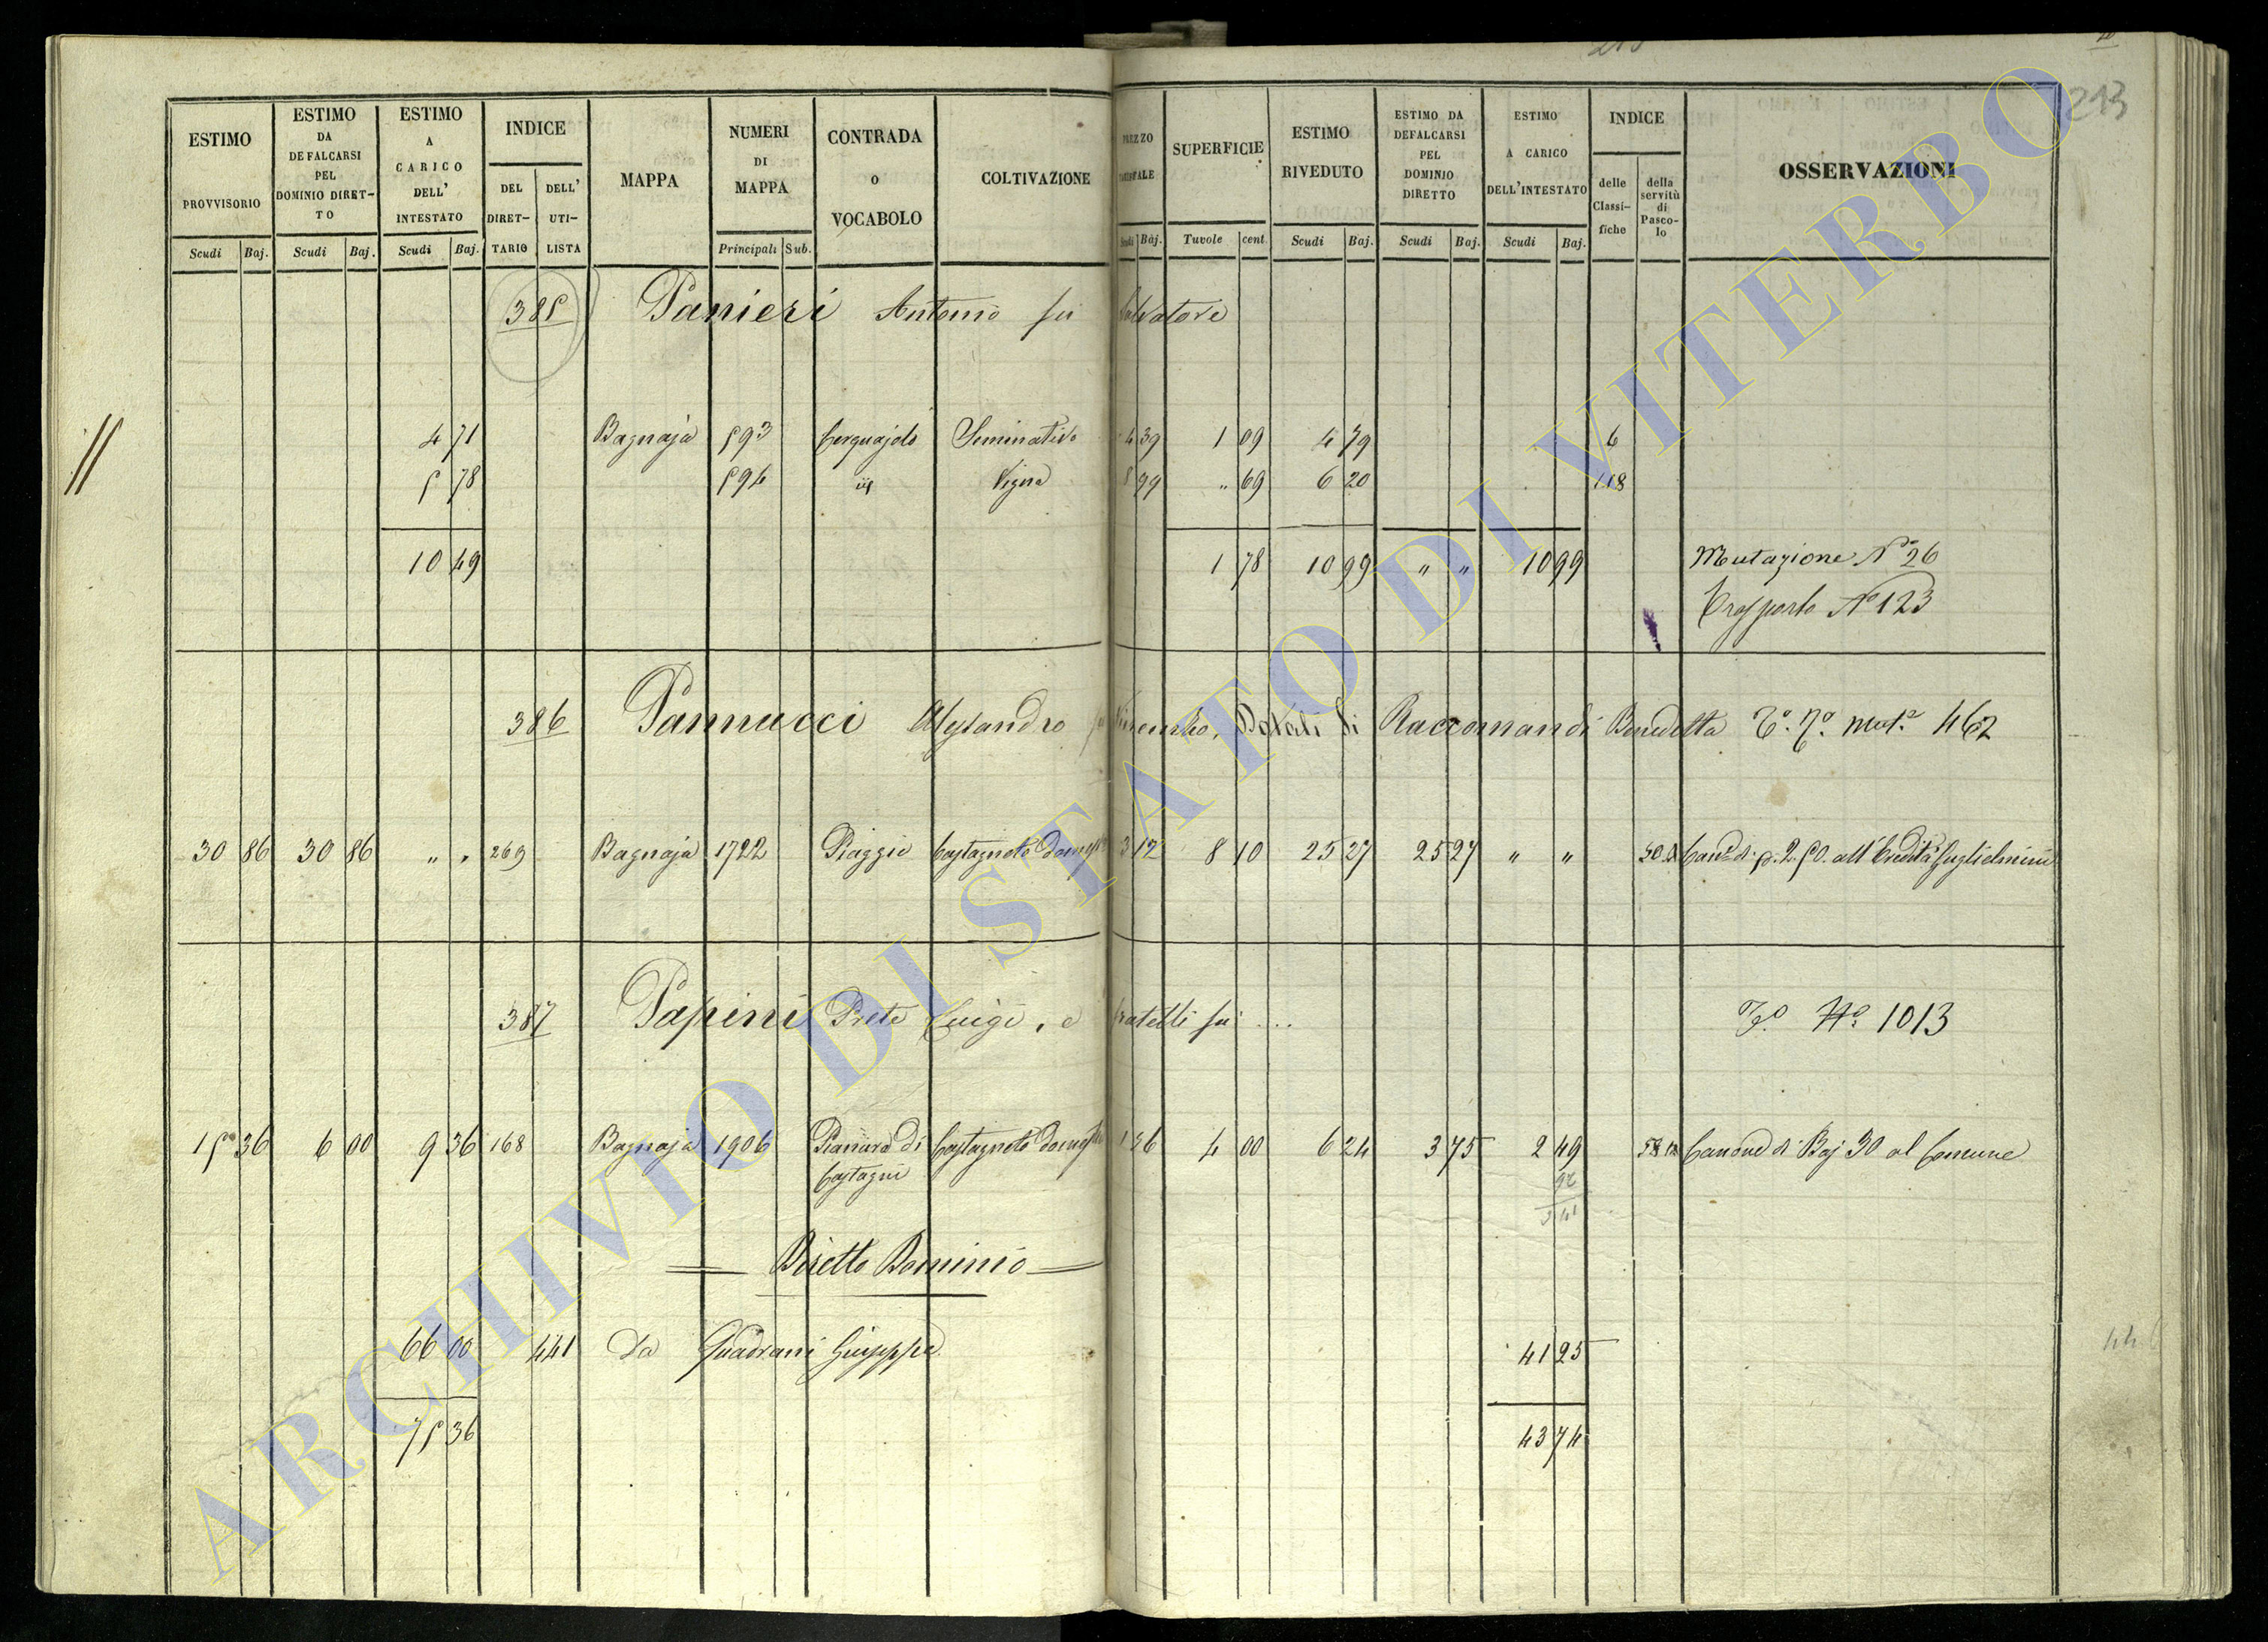 213
ESTIMO PROVVISORIO
ESTIMO DA DEFALCARSI PEL DOMINIO DIRETTO
ESTIMO A CARICO DELL' INTESTATO
INDICE
DEL DIRETTARIO
DELL' UTILISTA
MAPPA
NUMERI DI MAPPA
CONTRADA O VOCABOLO
COLTIVAZIONE
SUPERFICIE
ESTIMO RIVEDUTO
ESTIMO DA DEFALCARSI PEL DOMINIO DIRETTO
ESTIMO A CARICO DELL'INTESTATO
INDICE
delle Classifiche
della servitù di Pascolo
OSSERVAZIONI
Scudi Baj. Scudi Baj. Scudi Baj. Principali Sub. Baj. Tavole cent. Scudi Baj. Scudi Baj. Scudi Baj.
385 Panieri Antonio fu Salvatore
4 71 Bagnaja 593 Cerquajolo Seminativo 4 39 1 09 4 79 6
5 78 594 Vigna 8 99 " 69 6 20 118
10 49 1 78 10 99 " " 10 99 Mutazione N° 26
Trasporto N° 123
386 Pannucci Alessandro fu Vincenzo, Dotali di Raccomandi Benedetta 462
30 86 30 86 " " 269 Bagnaja 1722 Piaggie Castagneto Domest. 3 12 8 10 25 27 25 27 " " all' Eredità Guglielmini
387 Papini Prete Luigi, e fratelli fu ... N° 1013
15 36 6 00 9 36 168 Bagnaja 1906 Pianura di Castagneto Domest. 1 56 4 00 6 24 3 75 2 49 Canone di Baj 30 al Comune
Castagni
Diretto Dominio
66 00 441 Da Quadrani Giuseppe 41 25
75 36 43 74
ARCHIVIO DI STATO DI VITERBO